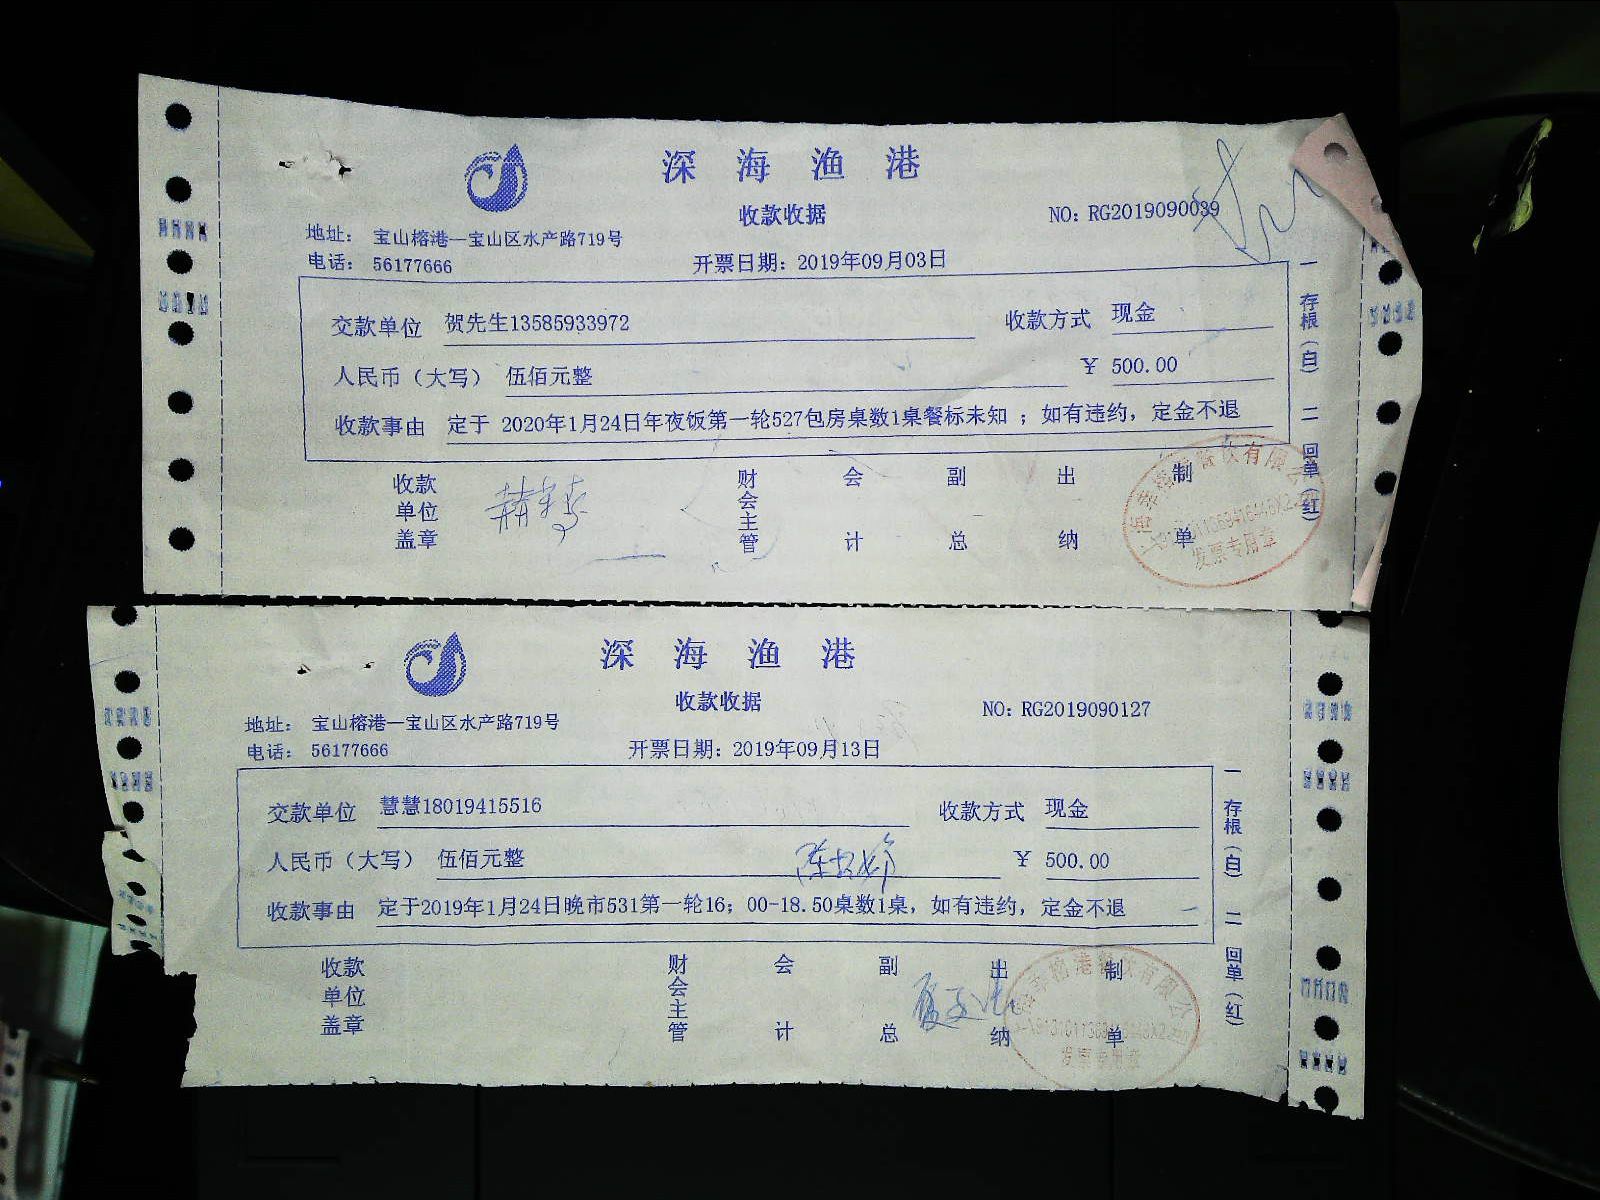 深海渔港
收款收据
NO: RG2019090039
地址: 宝山榕港—宝山区水产路719号
电话: 56177666
开票日期: 2019年09月03日
交款单位 贺先生13585933972 收款方式 现金
人民币（大写） 伍佰元整 ¥ 500.00
收款事由 定于 2020年1月24日年夜饭第一轮527包房桌数1桌餐标未知 ；如有违约，定金不退
一存根（白） 二回单（红）
收款单位盖章 财会主管 会计 副总 出纳 制单
发票专用章
深海渔港
收款收据
NO: RG2019090127
地址: 宝山榕港—宝山区水产路719号
电话: 56177666
开票日期: 2019年09月13日
交款单位 慧慧18019415516 收款方式 现金
人民币（大写） 伍佰元整 ¥ 500.00
收款事由 定于2019年1月24日晚市531第一轮16；00-18.50桌数1桌，如有违约，定金不退
一存根（白） 二回单（红）
收款单位盖章 财会主管 会计 副总 出纳 制单
发票专用章